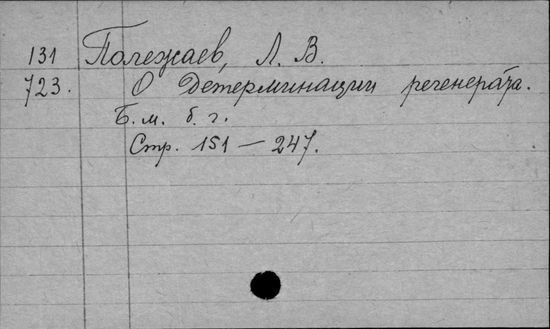 131 Полежаев, Л. В.
723. О детерминации регенерата.
Б. м. б. г.
Стр. 151 — 247.